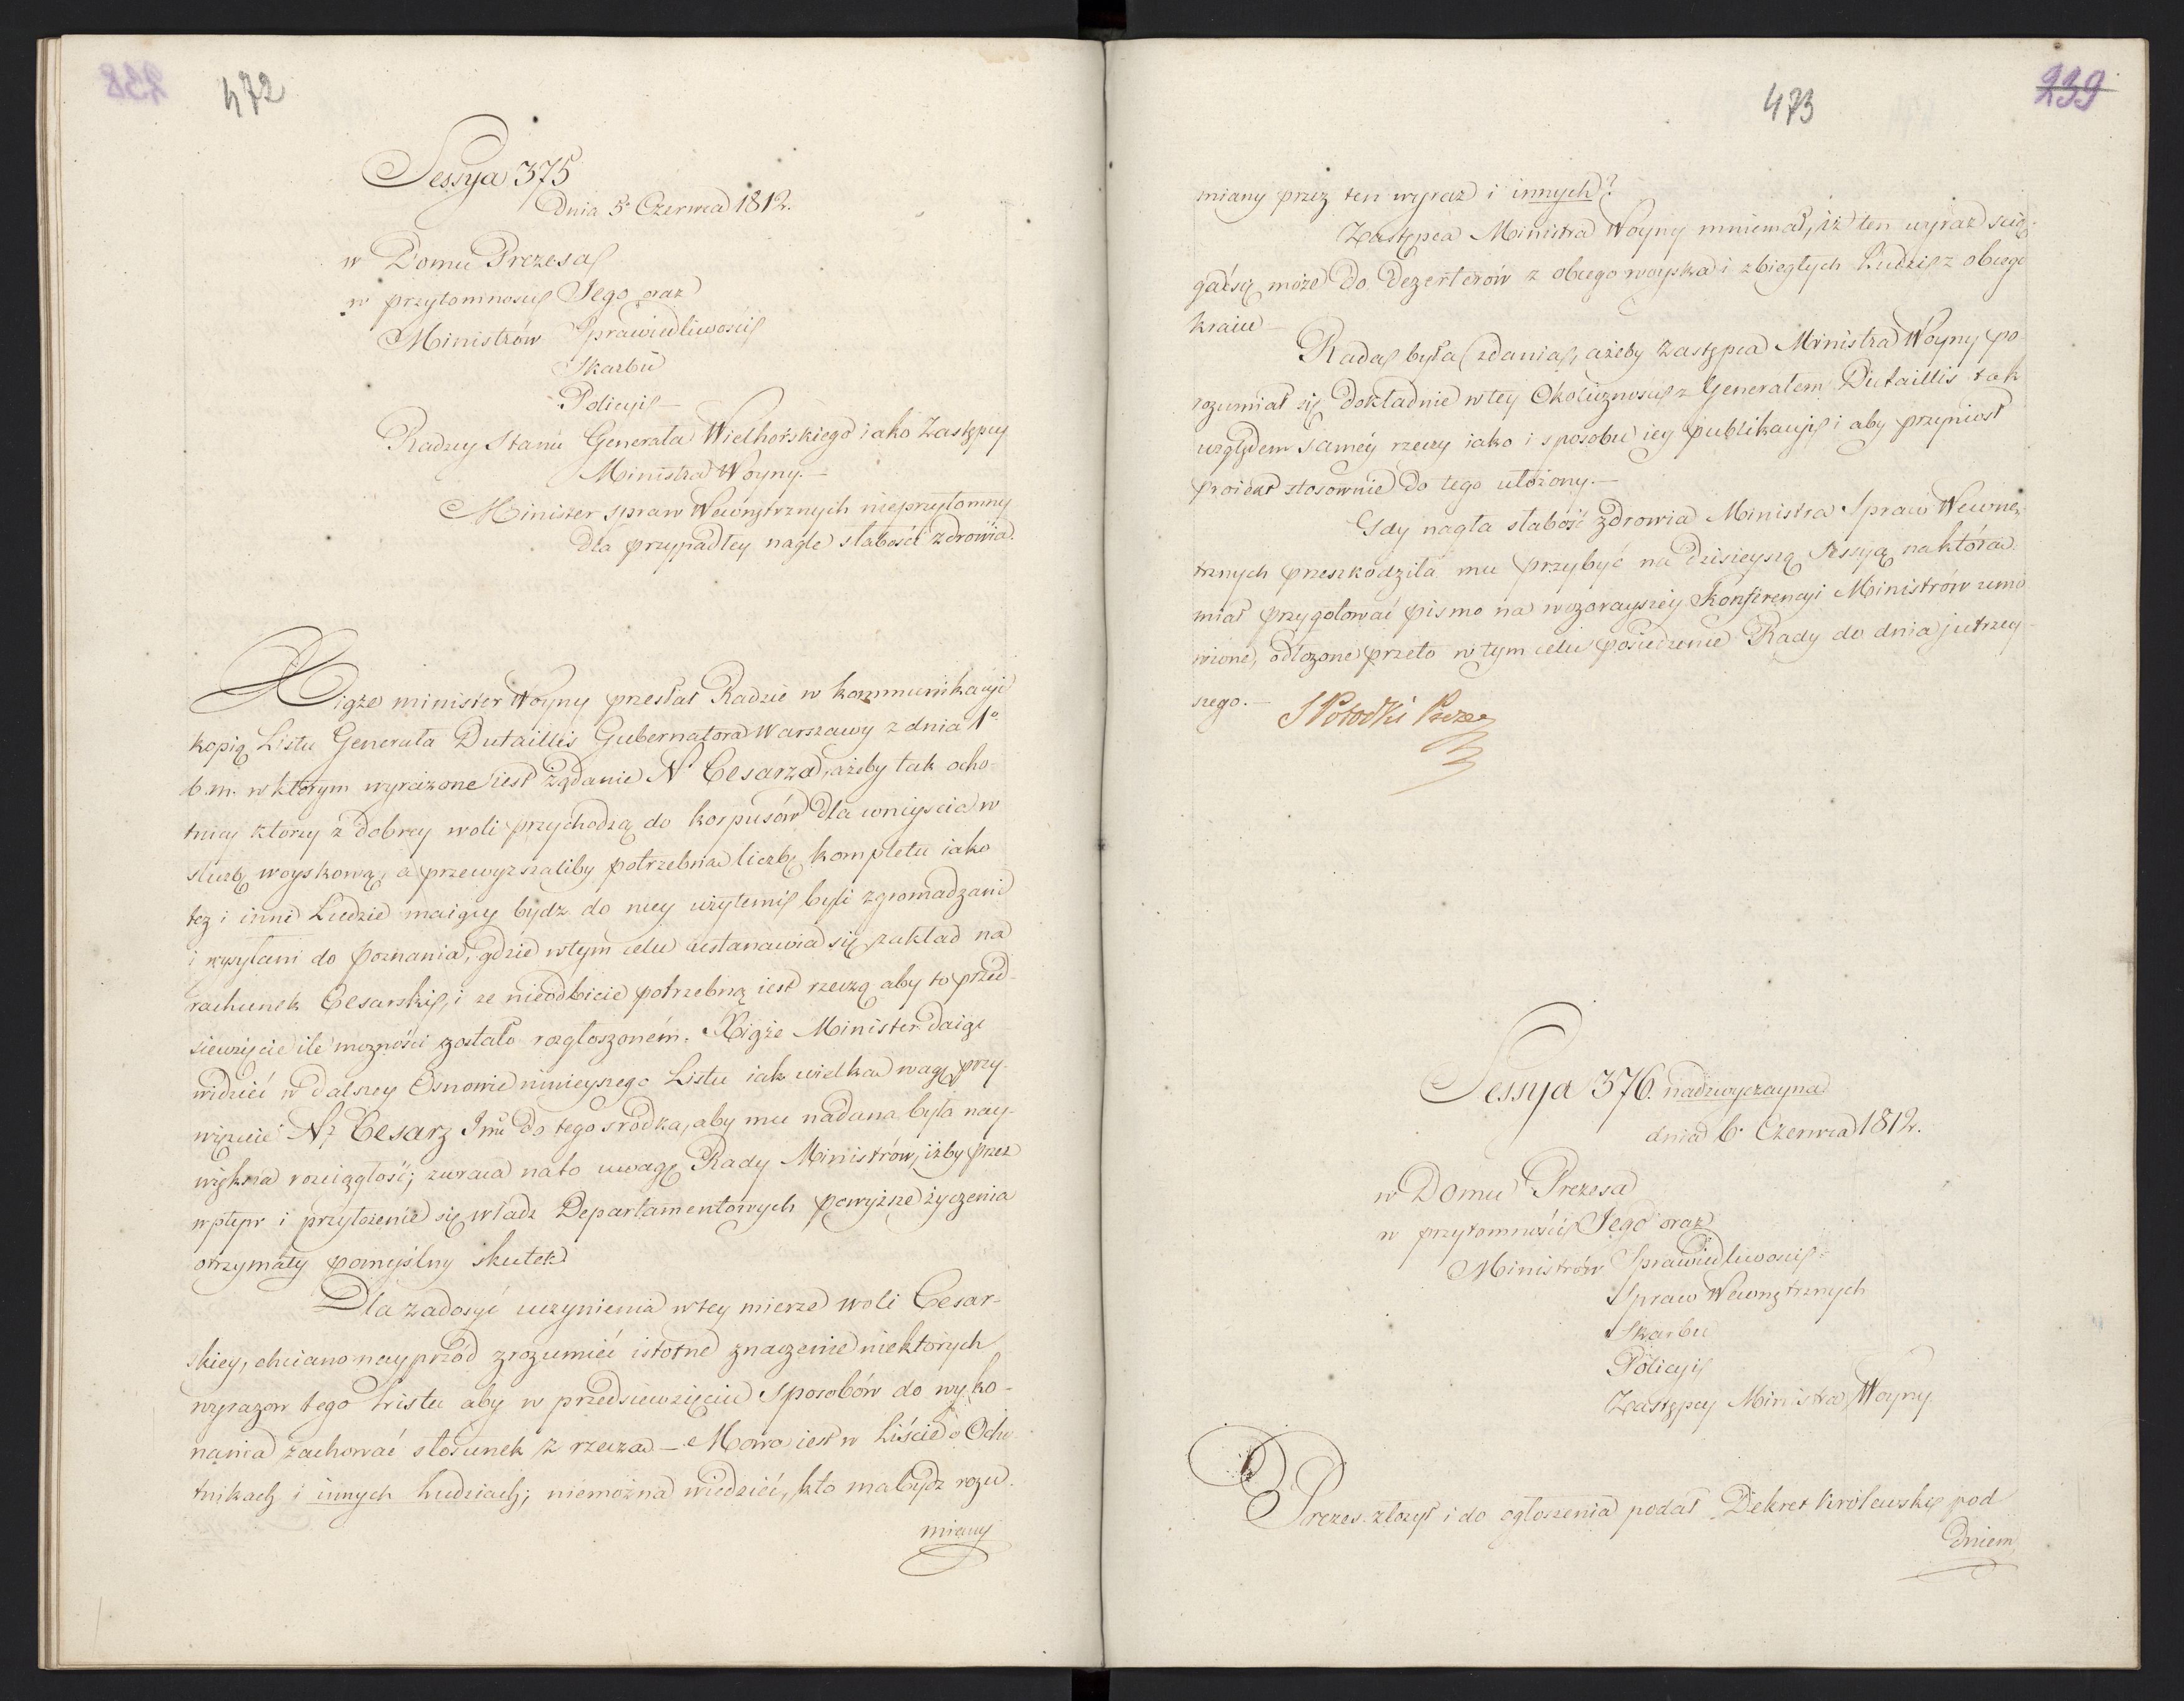 472
Sessya 375
Dnia 5. Czerwca 1812.
w Domu Prezesa
w przytomnosci Jego oraz
Ministrów Sprawiedliwości
Skarbu
Policyi –
Radzcy Stanu Generała Wielhorskiego iako Zastępcy
Ministra Woyny. –
Minister spraw Wewnętrznych nieprzytomny
dla przypadłey nagle słabości zdrowia.
Xiąże minister Woyny przesłał Radzie w kommunikacyi
kopią Listu Generała Dutaillis Gubernatora Warszawy z dnia 1o
b.m. w którym wyrażone iest żądanie N. Cesarza, ażeby tak ocho-
tnicy którzy z dobrey woli przychodzą do korpusów dla wniyscia w
służbę woyskową, a przewyzszaliby potrzebną liczbę kompletu iako
też i inni Ludzie maiący bydz do niey użytemi byli zgromadzani
i wysyłani do Poznania, gdzie w tym celu ustanawia się zakład na
rachunek Cesarski, i ze nieodbicie potrzebną iest rzeczą aby to przed-
siewzięcie ile możności zostało rozgłoszoném. Xiąże Minister daiąc
widzieć w dalszey Osnowie ninieyszego Listu iak wielką wagę przy-
więzuie N. Cesarz Jmć do tego środka, aby mu nadana była nay-
większa rozciągłość; zwraca na to uwagę Rady Ministrów, iżby przez
wpływ i przyłożenie się władz Departamentowych powyższe życzenia
otrzymały pomyślny skutek.
Dla zadosyć uczynienia w tey mierze woli Cesar-
skiey, chciano nayprzód zrozumieć istotne znaczenie niektórych
wyrazow tego Listu aby w przedsiewzięciu sposobów do wyko-
nania zachować stosunek z rzeczą – Mowa iest w Liście o Ocho
tnikach i innych Ludziach; niemożna wiedzieć, kto ma bydz rozu-
miany
473
239
miany przez ten wyraz i innych?
Zastępca Ministra Woyny mniemał, iż ten wyraz scią-
gać się może do Dezerterów z obcego woyska i zbiegłych Ludzi z obcego
kraiu –
Rada była zdania, ażeby Zastępca Ministra Woyny po-
rozumiał się dokładnie w tey Okoliczności z Generałem Dutaillis tak
względem saméy rzeczy iako i sposobu iey publikacyi i aby przyniosł
proiekt stosownie do tego ułożony. –
Gdy nagła słabość zdrowia Ministra Spraw Wewnę-
trznych przeszkodziła mu przybyć na dzisieyszą Sessyą na którą
miał przygotować pismo na wczorayszéy Konferencyi Ministrów umó
wione, odłożone przeto w tym celu posiedzenie Rady do dnia jutrzey-
szego. –
S Potocki Prezes
Sessya 376. nadzwyczayna
dnia 6. Czerwca 1812.
w Domu Prezesa
w przytomności Jego oraz
Ministrów Sprawiedliwości
Spraw Wewnętrznych
Skarbu
Policyi
Zastępcy Ministra Woyny
Prezes złożył i do ogłoszenia podał Dekret Królewski pod
dniem